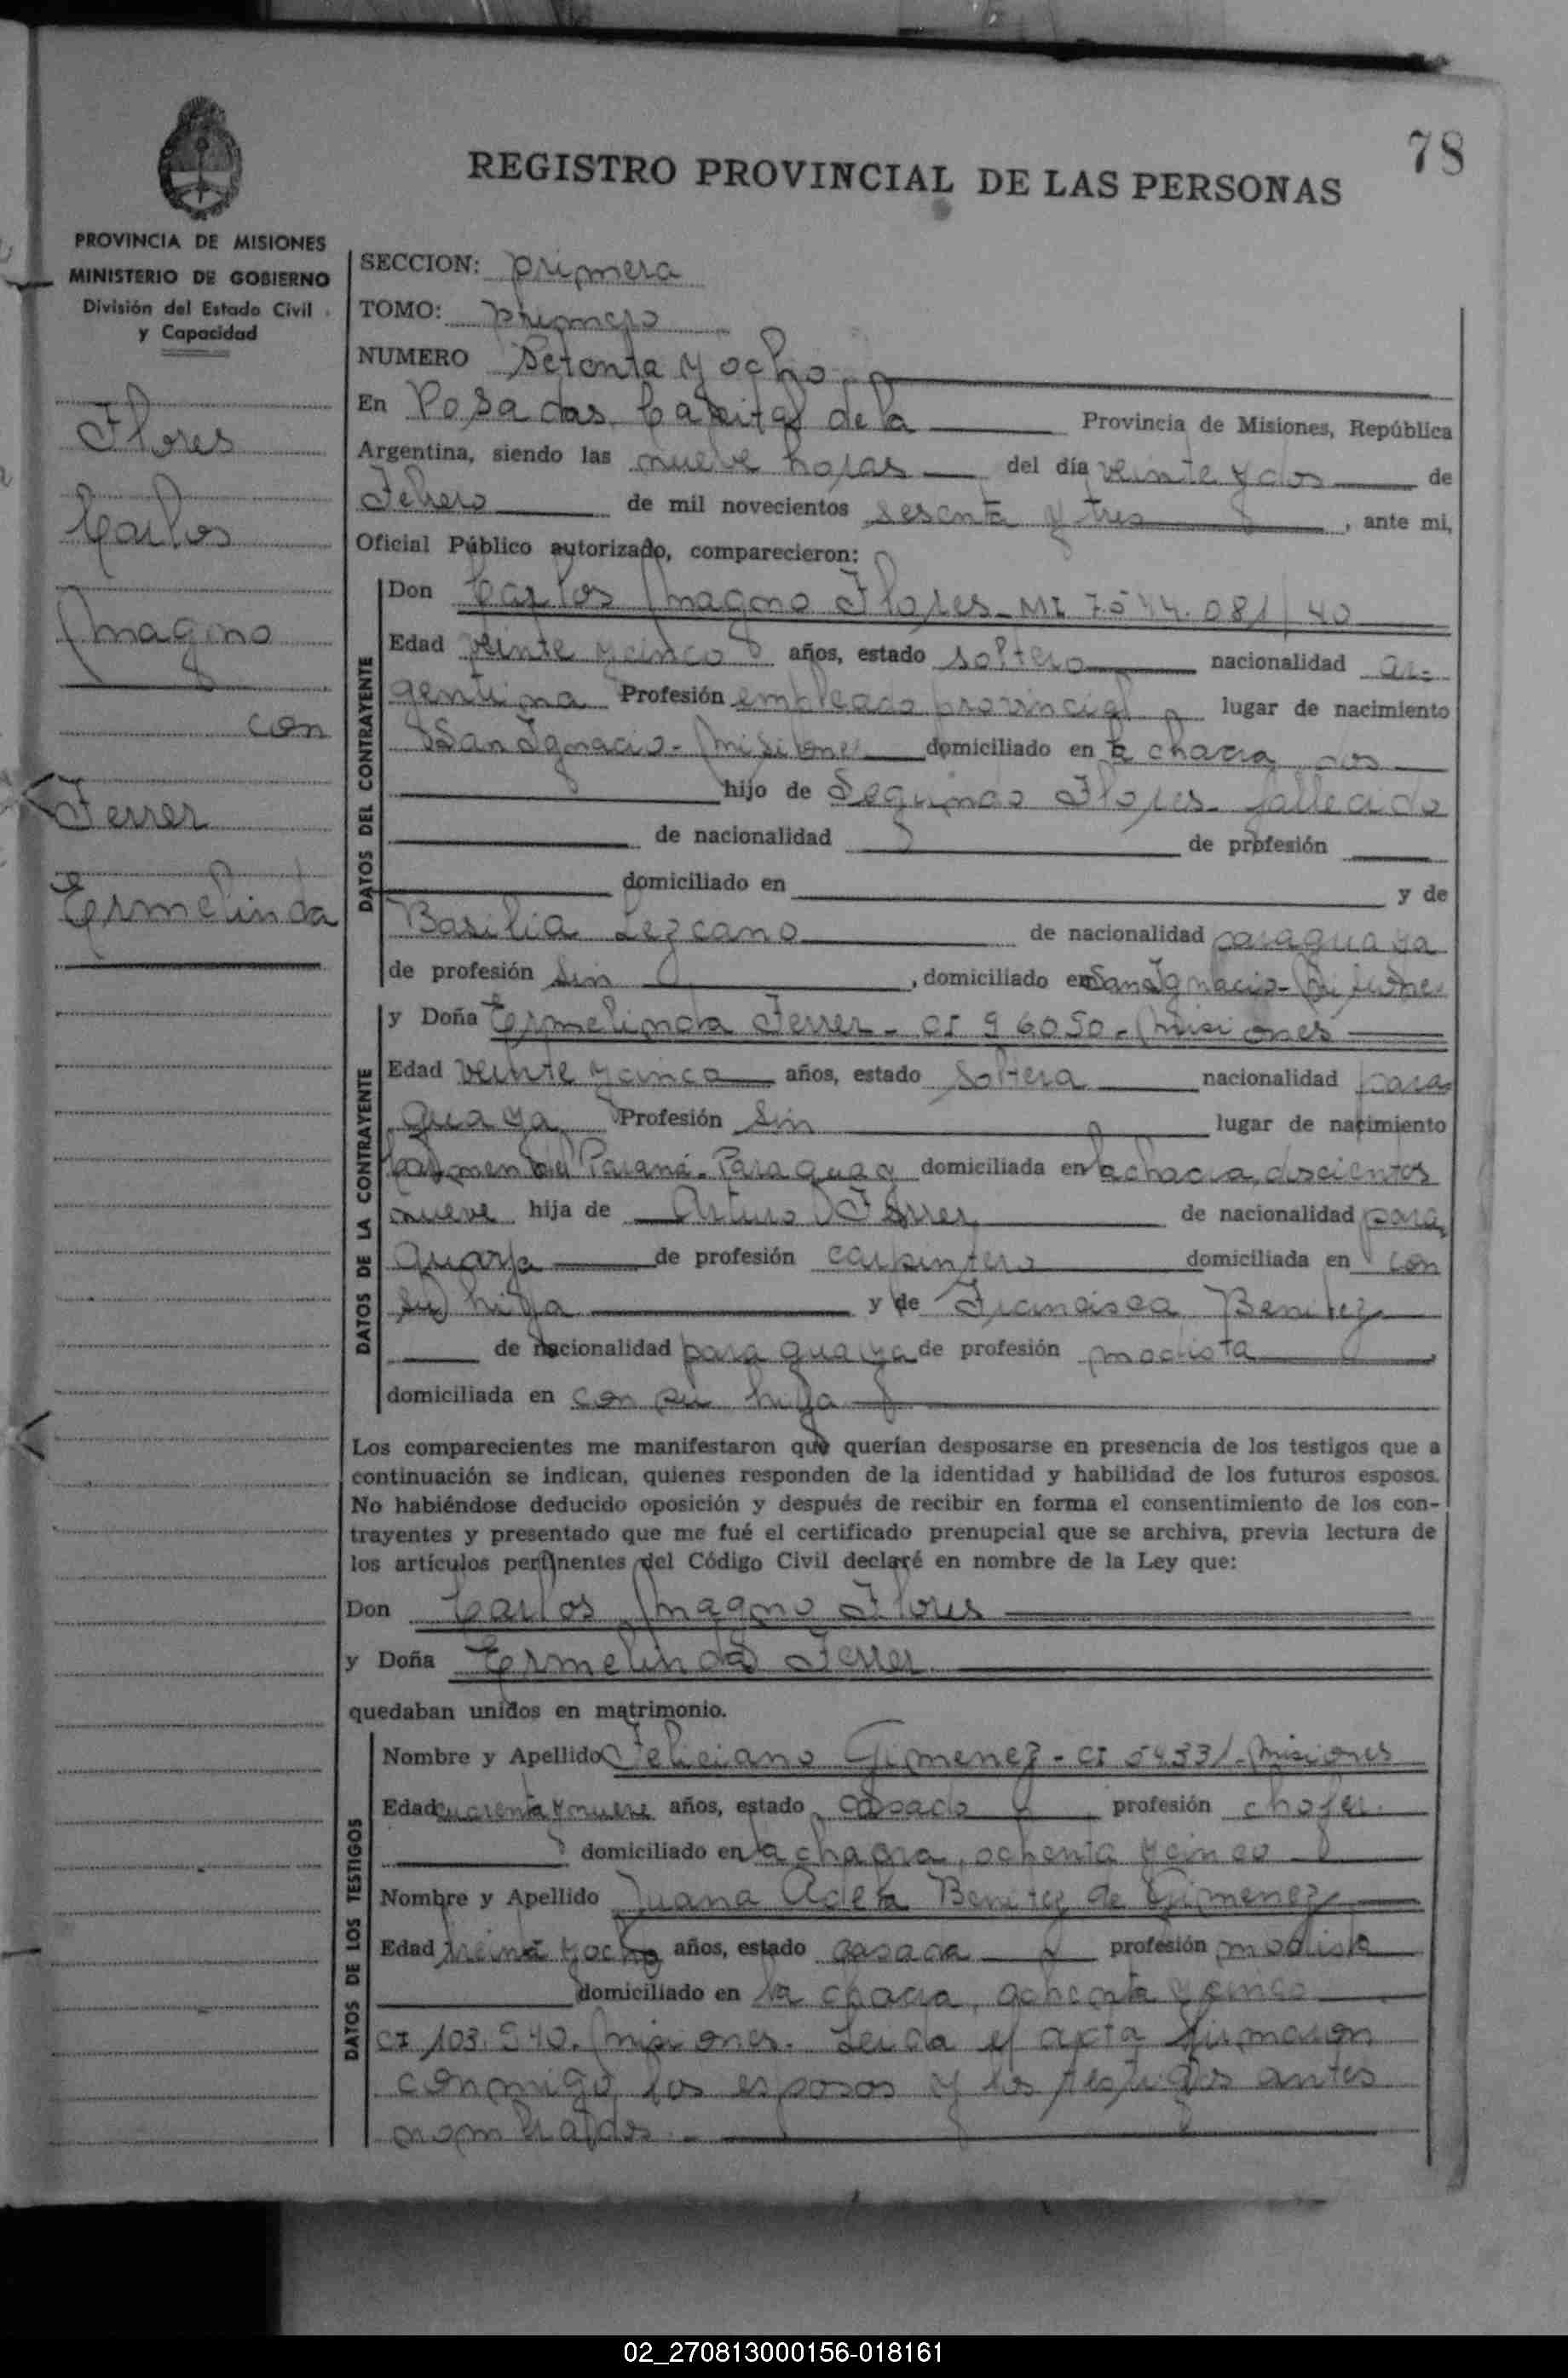 78
REGISTRO PROVINCIAL DE LAS PERSONAS
PROVINCIA DE MISIONES
MINISTERIO DE GOBIERNO
División del Estado Civil
y Capacidad
Flores
Carlos
Magno
con
Ferrer
Ermelinda
SECCION: primera
TOMO: primero
NUMERO Setenta y ocho
En Posadas, Capital de la Provincia de Misiones, República
Argentina, siendo las nueve horas del día veinte y dos de
Febrero de mil novecientos sesenta y tres, ante mi,
Oficial Público autorizado, comparecieron:
DATOS DEL CONTRAYENTE
Don Carlos Magno Flores - MI 7.544.081/40
Edad veinte y cinco años, estado soltero nacionalidad ar-
gentina Profesión empleado provincial lugar de nacimiento
San Ignacio - Misiones domiciliado en la chacra dos
hijo de Segundo Flores - fallecido
de nacionalidad de profesión
domiciliado en y de
Basilia Lezcano de nacionalidad paraguaya
de profesión sin, domiciliado en San Ignacio - Misiones
DATOS DE LA CONTRAYENTE
y Doña Ermelinda Ferrer - CI 96050 - Misiones
Edad veinte y cinco años, estado soltera nacionalidad para
guaya Profesión sin lugar de nacimiento
Carmen del Paraná - Paraguay domiciliada en la chacra, doscientos
nueve hija de Arturo Ferrer de nacionalidad para
guaya de profesión carpintero domiciliada en con
su hija y de Francisca Benitez
de nacionalidad paraguaya de profesión modista
domiciliada en con su hija
Los comparecientes me manifestaron que querían desposarse en presencia de los testigos que a
continuación se indican, quienes responden de la identidad y habilidad de los futuros esposos.
No habiéndose deducido oposición y después de recibir en forma el consentimiento de los con-
trayentes y presentado que me fué el certificado prenupcial que se archiva, previa lectura de
los artículos pertinentes del Código Civil declaré en nombre de la Ley que:
Don Carlos Magno Flores
y Doña Ermelinda Ferrer
quedaban unidos en matrimonio.
DATOS DE LOS TESTIGOS
Nombre y Apellido Feliciano Gimenez - CI 54331 - Misiones
Edad cuarenta y nueve años, estado casado profesión chofer.
domiciliado en la chacra, ochenta y cinco
Nombre y Apellido Juana Adela Benitez de Gimenez
Edad treinta y ocho años, estado casada profesión modista
domiciliado en la chacra, ochenta y cinco
CI 103.940. Misiones. Leida el acta firmaron
conmigo los esposos y los testigos antes
nombrados. -
02_270813000156-018161